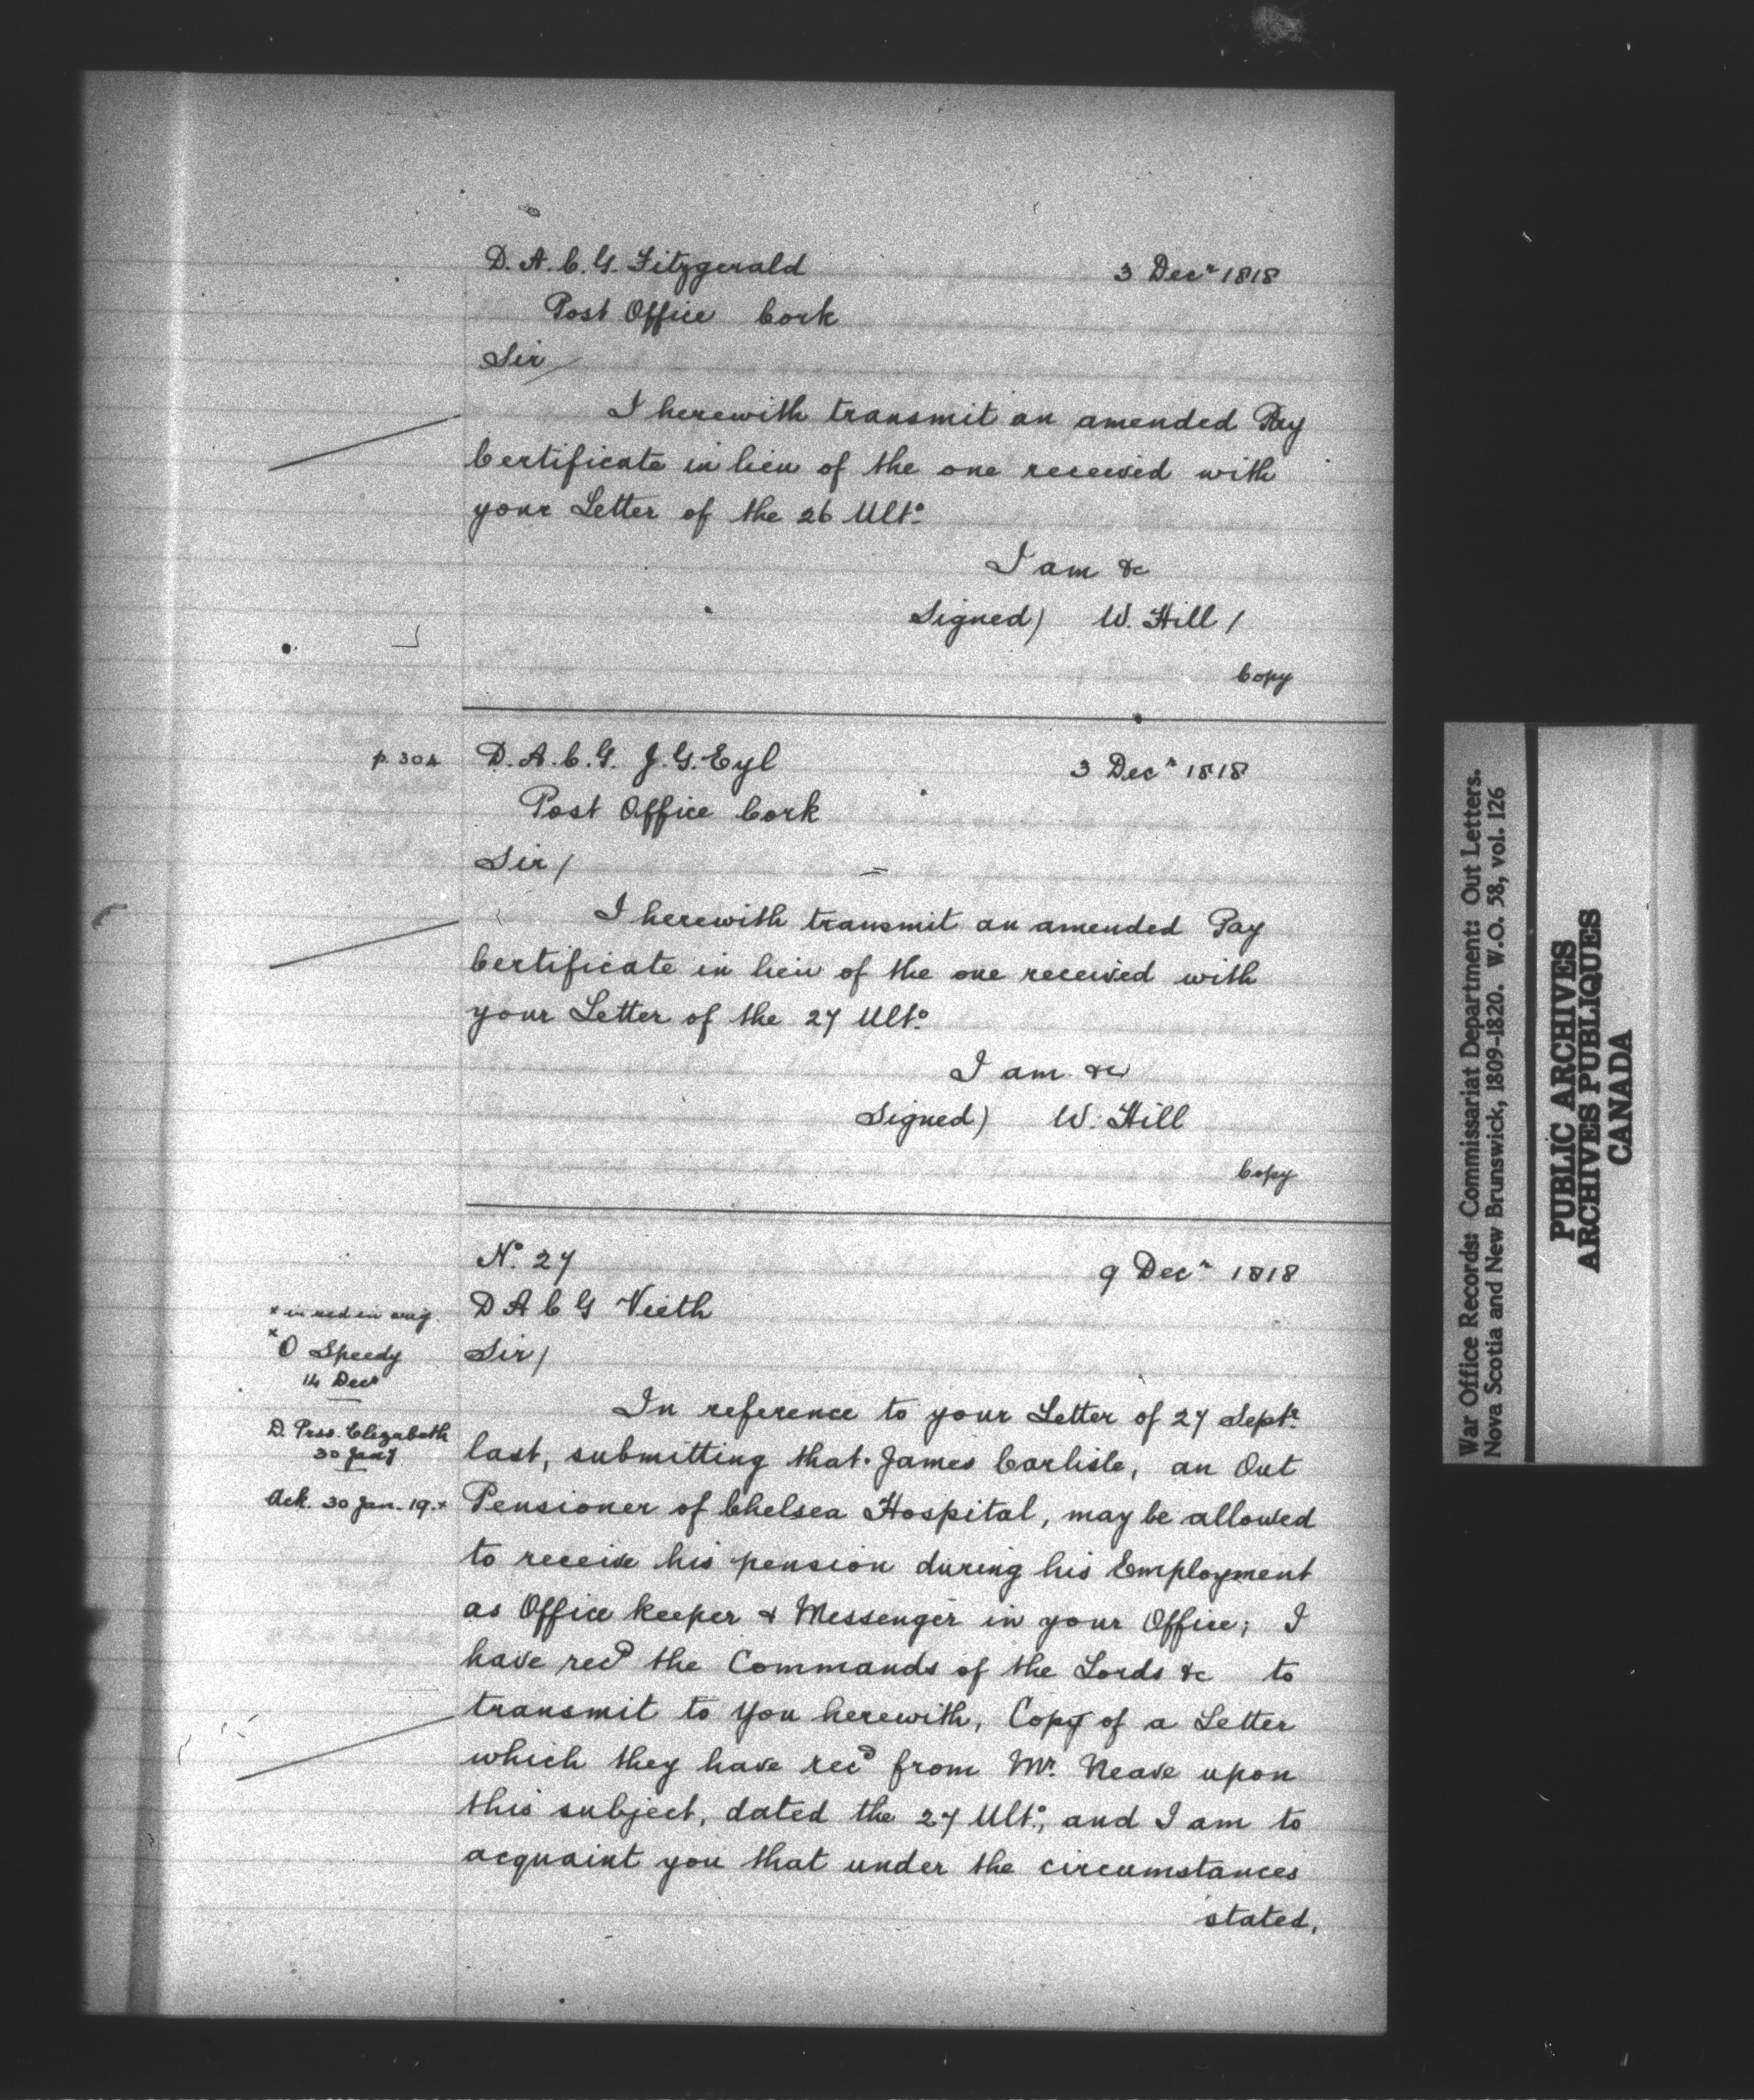 D. A. C. G. Fitzgerald 3 Decr 1818
Post Office Cork
Sir/
I herewith transmit an amended Pay
Certificate in lieu of the one received with
your Letter of the 26 Ulto.
I am &c
Signed) W. Hill /
Copy
p. 304
D. A. C. G. J. G. Eyl 3 Decr 1818
Post Office Cork
Sir/
I herewith transmit an amended Pay
Certificate in lieu of the one received with
your Letter of the 27 Ulto.
I am &c
Signed) W. Hill
Copy
No. 27 9 Decr 1818
D A C G Vieth
Sir/
x in red in orig.
x O Speedy
14 Decr
D. Prss. Elizabeth
30 Jany
Ack. 30 Jan. 19. x
In reference to your Letter of 27 Septr.
last, submitting that James Carlisle, an Out
Pensioner of Chelsea Hospital, may be allowed
to receive his pension during his Employment
as Office keeper & Messenger in your Office; I
have recd the Commands of the Lords &c to
transmit to you herewith, Copy of a Letter
which they have recd from Mr. Neave upon
this subject, dated the 27 Ulto., and I am to
acquaint you that under the circumstances
stated,
War Office Records: Commissariat Department: Out Letters.
Nova Scotia and New Brunswick, 1809-1820. W.O. 58, vol. 126
PUBLIC ARCHIVES
ARCHIVES PUBLIQUES
CANADA